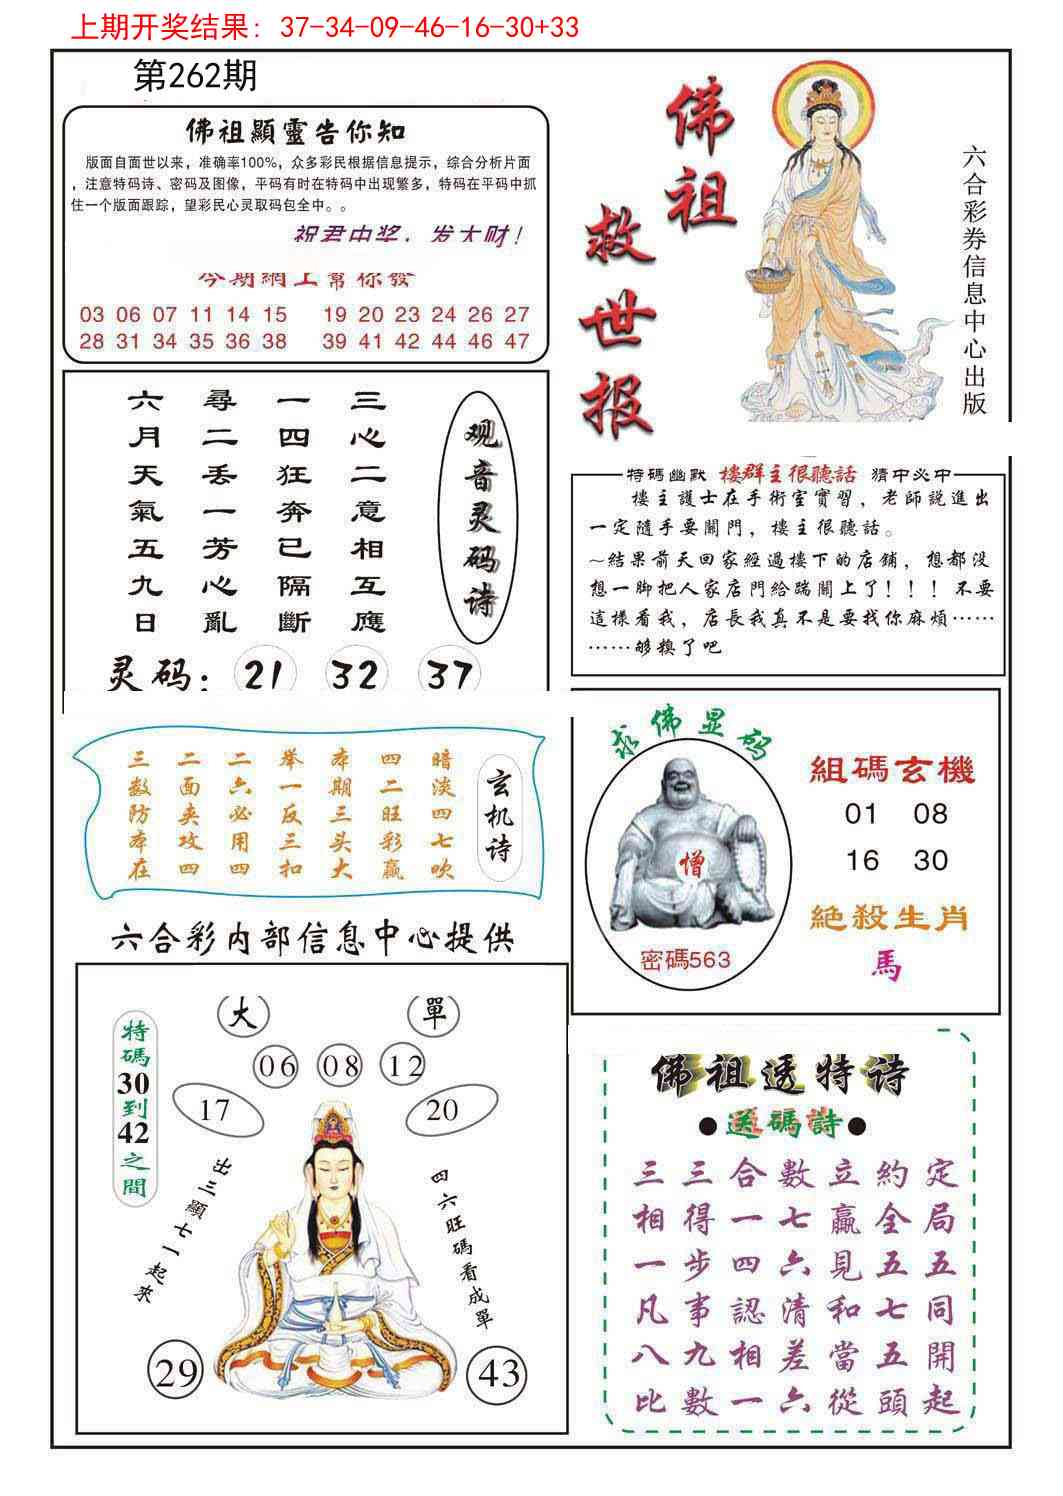 上期开奖结果: 37-34-09-46-16-30+33
第262期
佛祖顯靈告你知
版面自面世以来，准确率100%，众多彩民根据信息提示，综合分析片面
，注意特码诗、密码及图像，平码有时在特码中出现繁多，特码在平码中抓
住一个版面跟踪，望彩民心灵取码包全中。。
祝君中奖，发大财！
今期網上幫你發
03 06 07 11 14 15 19 20 23 24 26 27
28 31 34 35 36 38 39 41 42 44 46 47
佛祖
救世报
六合彩券信息中心出版
观音灵码诗
三心二意相互應
一四狂奔已隔斷
尋二丢一芳心亂
六月天氣五九日
灵码：21 32 37
特碼幽默 樓群主很聽話 猜中必中
樓主護士在手術室實習，老師説進出
一定隨手要關門，樓主很聽話。
～結果前天回家經過樓下的店鋪，想都没
想一脚把人家店門給踹關上了！！！不要
這樣看我，店長我真不是要找你麻煩……
……够糗了吧
玄机诗
暗淡四七吹
四二旺彩赢
本期三头大
举一反三扣
二六必用四
二面夹攻四
三数防本在
求佛显码
僧
密碼563
組碼玄機
01 08
16 30
絕殺生肖
馬
六合彩内部信息中心提供
特碼30到42之間
大
單
06 08 12
17
20
出三顯七一起來
四六旺碼看成單
29
43
佛祖透特诗
●送碼詩●
三三合數立約定
相得一七赢全局
一步四六見五五
凡事認清和七同
八九相差當五開
比數一六從頭起